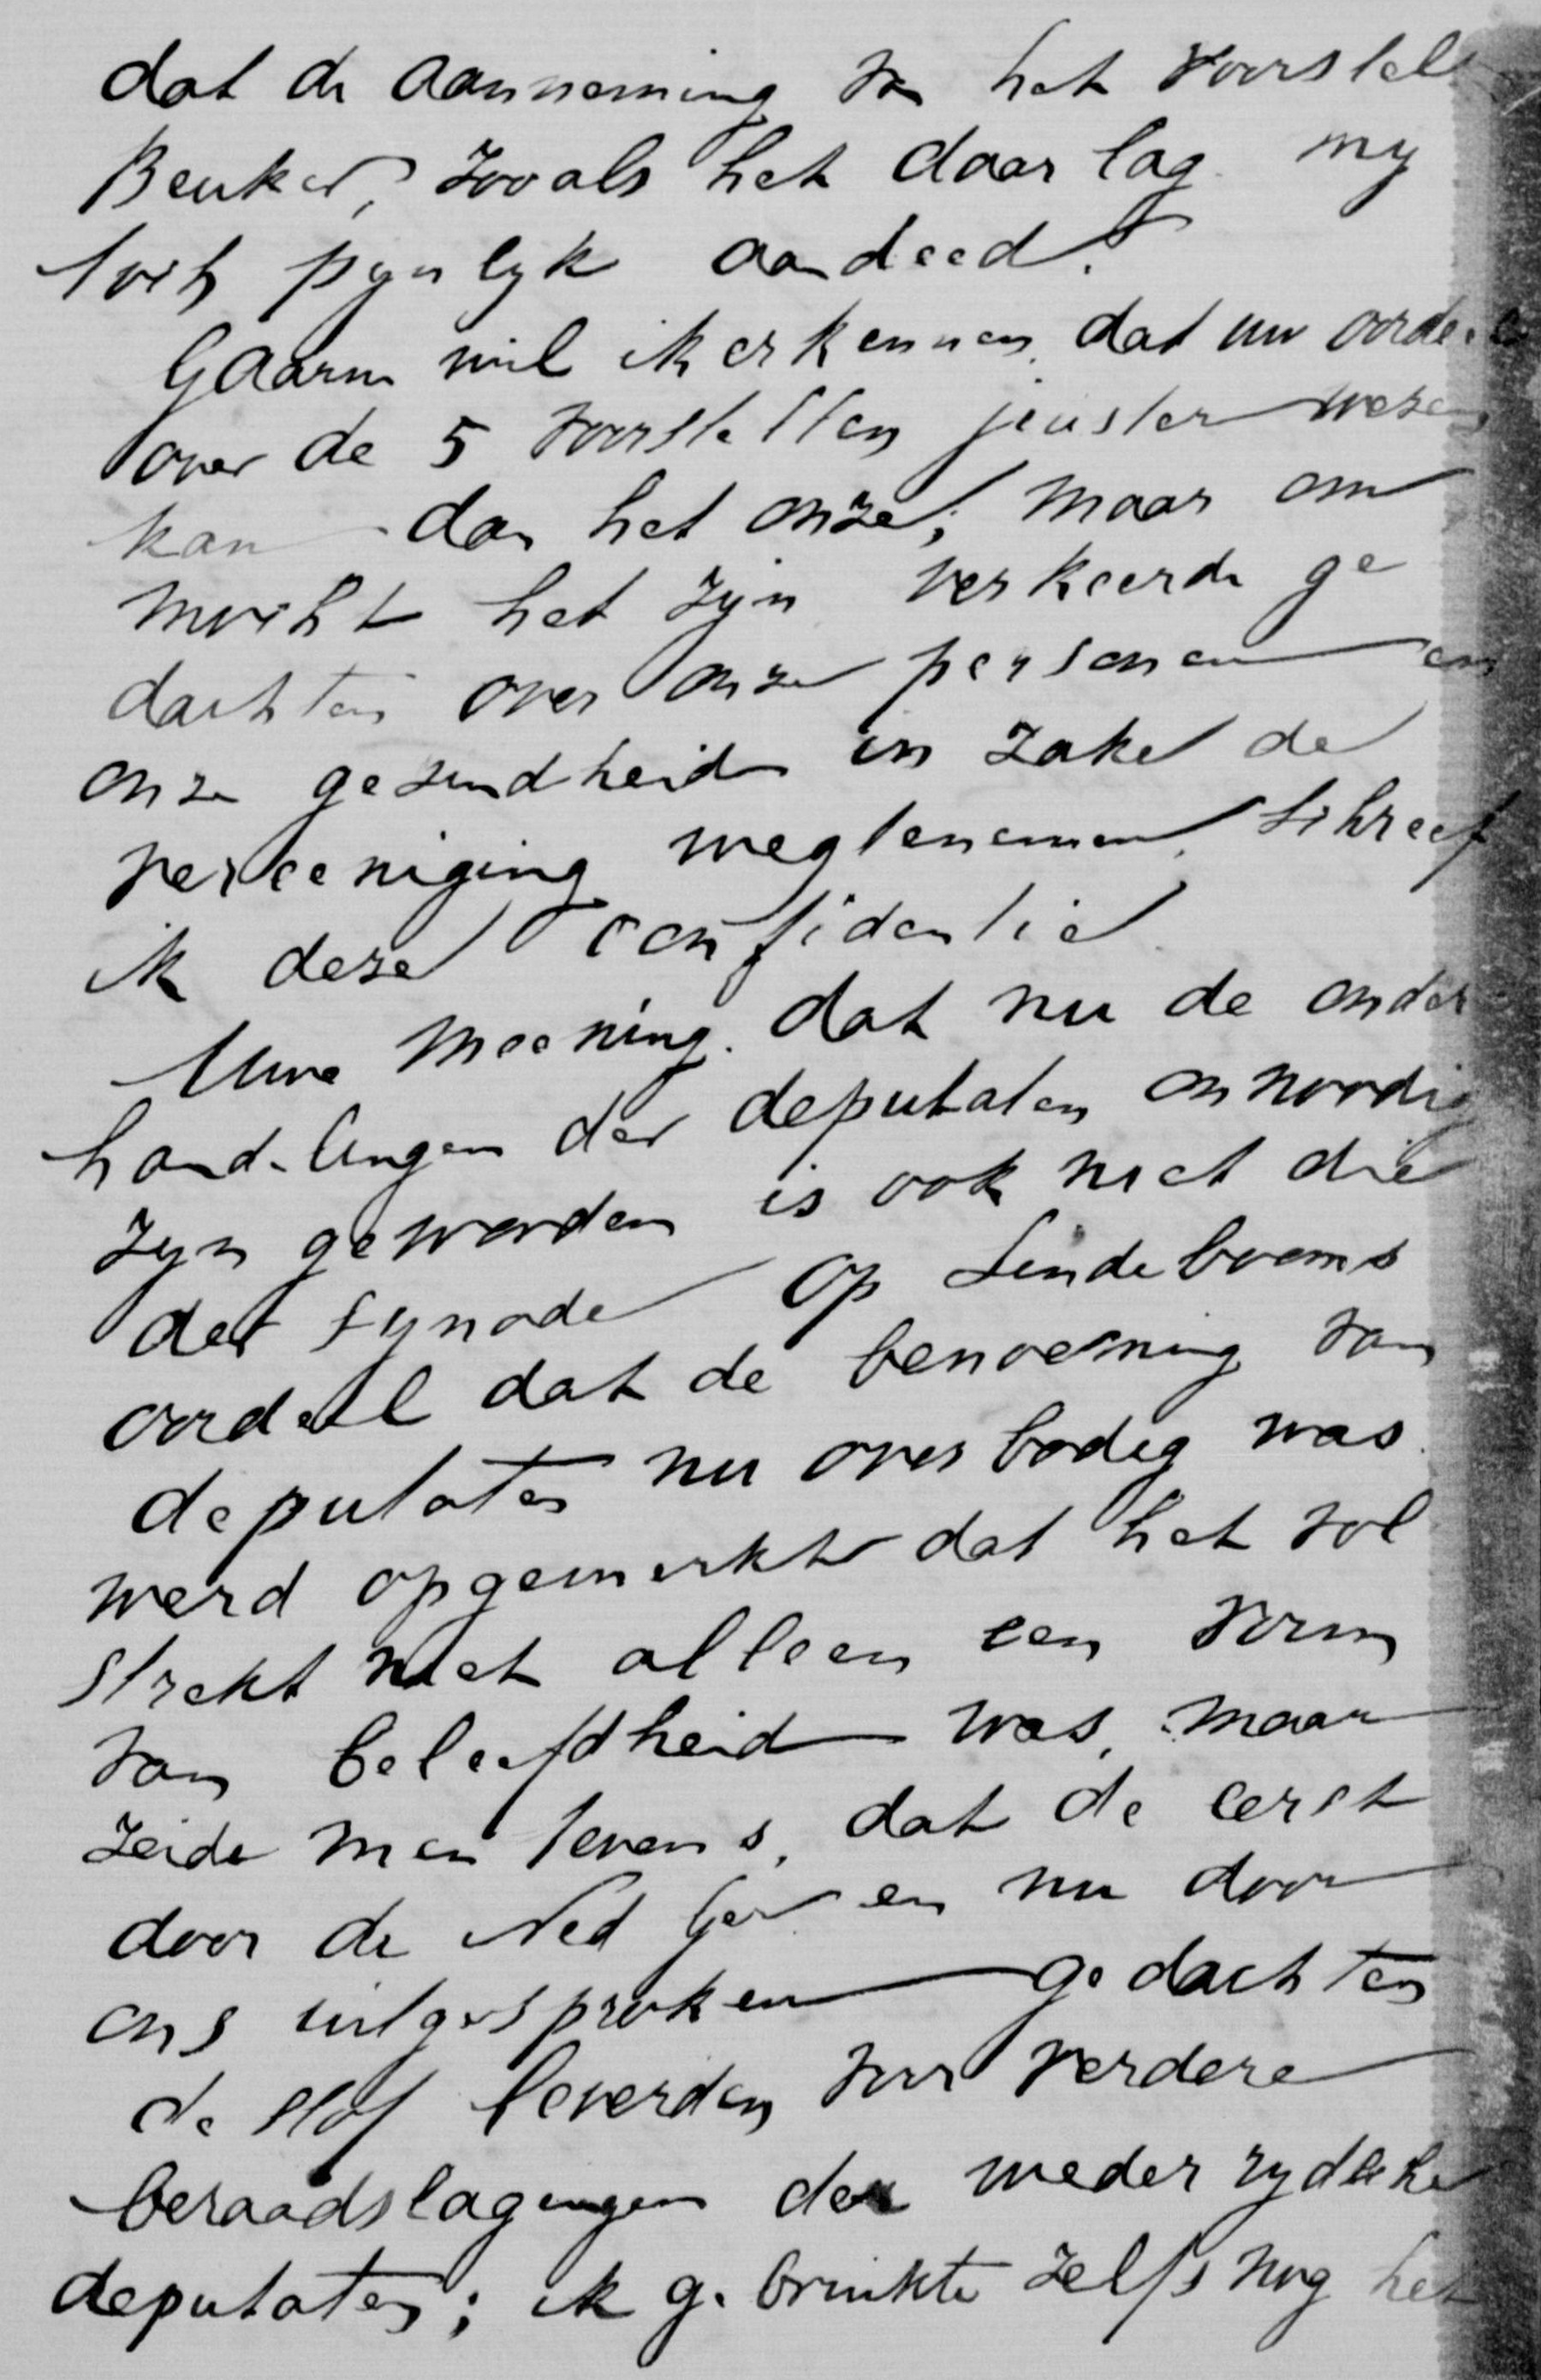 dat de aanneming van het voorstel
Beuker, zooals het daar lag my
toch pynlyk aandeed.
Gaarne wil ik erkennen, dat uw oordeel
over de 5 voorstellen juister wezen
kan dan het onze; maar om
mocht het zyn verkeerde ge
dachten over onze personen en
onze gezindheid in zake de
vereeniging wegtenemen, schreef
ik deze confidentie.
Uwe meening. dat nu de onder
handelingen der deputaten onnoodig
zyn geworden is ook niet die
der Synode. Op Lindebooms
oordeel dat de benoeming van
deputaten nu overbodig was.
werd opgemerkt dat het vol
strekt niet alleen een vorm
van beleefdheid was, maar
zeide men tevens, dat de eerst
door de Ned Ger en nu door
ons uitgesproken gedachten
de stof leverden voor verdere
beraadslagingen der wederzydsche
deputaten; ik gebruikte zelfs nog het